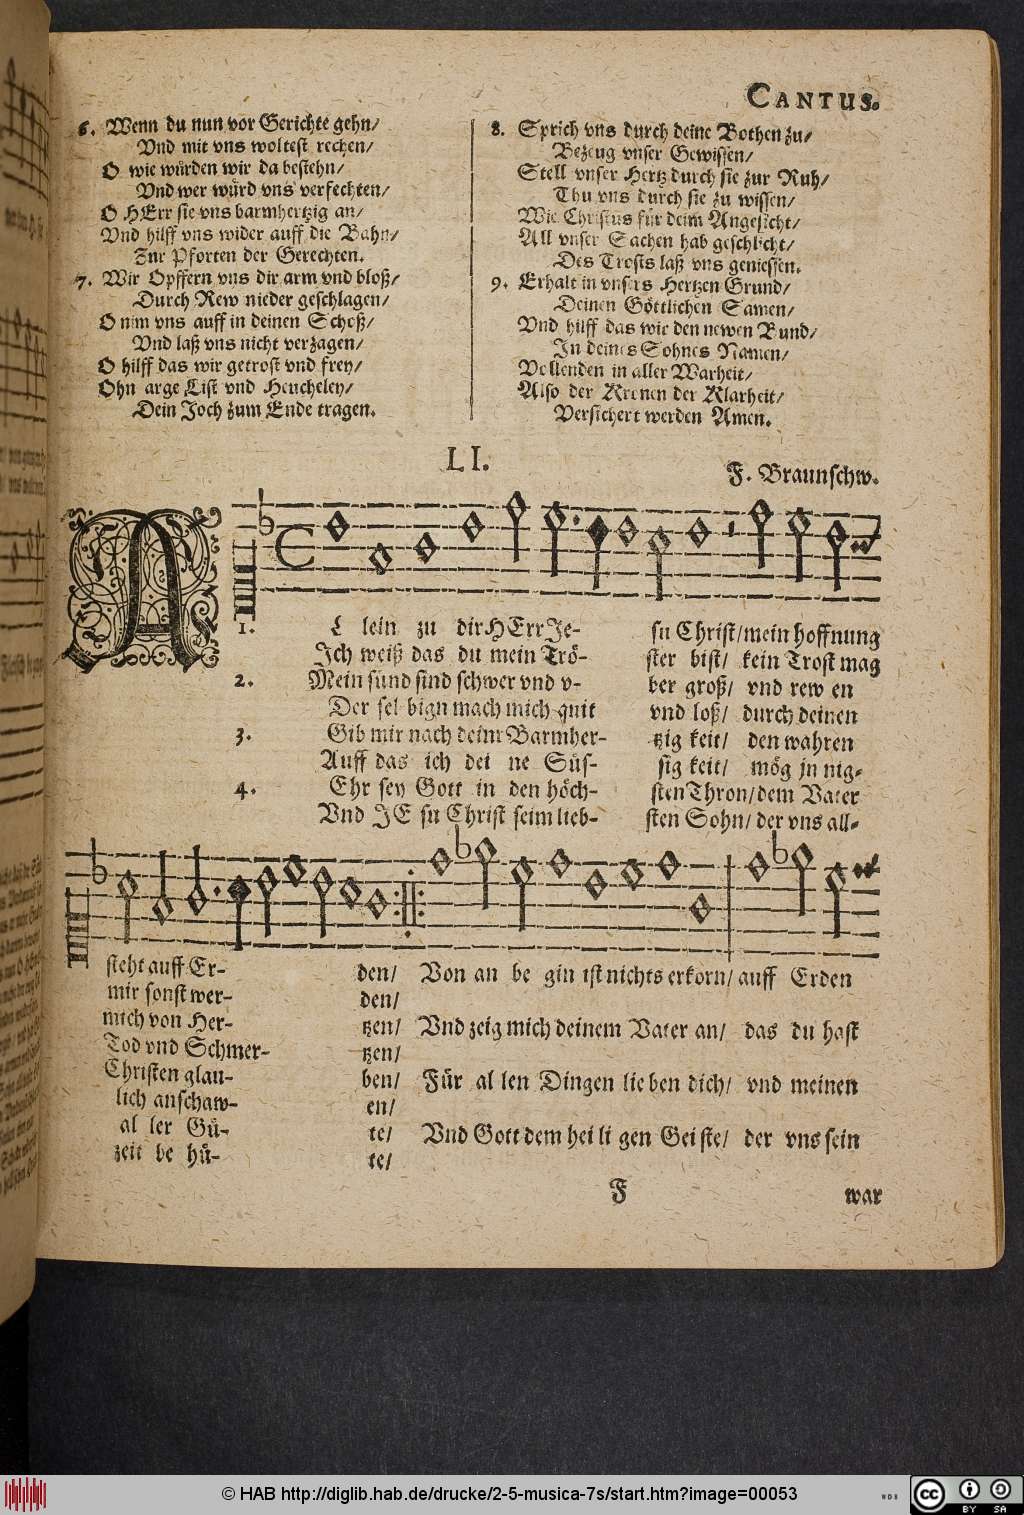 CANTUS.
6. Wenn du nun vor Gerichte gehn/
Vnd mit vns woltest rechen/
O wie würden wir da bestehn/
Vnd wer würd vns verfechten/
O HErr sie vns barmhertzig an/
Vnd hilff vns wider auff die Bahn/
Zur Pforten der Gerechten.
7. Wir Opffern vns dir arm vnd bloß/
Durch Rew nieder geschlagen/
O nim vns auff in deinen Schoß/
Vnd laß vns nicht verzagen/
O hilff das wir getrost vnd frey/
Ohn arge List vnd Heucheley/
Dein Joch zum Ende tragen.
8. Sprich vns durch deine Bothen zu/
Bezeug vnser Gewissen/
Stell vnser Hertz durch sie zur Ruh/
Thu vns durch sie zu wissen/
Wie Christus für deim Angesicht/
All vnser Sachen hab geschlicht/
Des Trosts laß vns geniessen.
9. Erhalt in vnsers Hertzen Grund/
Deinen Göttlichen Samen/
Vnd hilff das wir den newen Bund/
In deines Sohnes Namen/
Vollenden in aller Warheit/
Also der Kronen der Klarheit/
Versichert werden Amen.
LI.
F. Braunschw.
A
1. L lein zu dir HErr Je- su Christ/ mein hoffnung
Ich weiß das du mein Trö- ster bist/ kein Trost mag
2. Mein sünd sind schwer vnd v- ber groß/ vnd rew en
Der sel bign mach mich quit vnd loß/ durch deinen
3. Gib mir nach deinr Barmher- tzig keit/ den wahren
Auff das ich dei ne Süs- sig keit/ mög jn nig-
4. Ehr sey Gott in den höch- sten Thron/ dem Vater
Vnd JE su Christ seim lieb- sten Sohn/ der vns all-
steht auff Er- den/ Von an be gin ist nichts erkorn/ auff Erden
mir sonst wer- den/
mich von Her- tzen/ Vnd zeig mich deinem Vater an/ das du hast
Tod vnd Schmer- tzen/
Christen glau- ben/ Für al len Dingen lie ben dich/ vnd meinen
lich anschaw- en/
al ler Gü- te/ Vnd Gott dem hei li gen Gei ste/ der vns sein
zeit be hü- te/
F war
© HAB http://diglib.hab.de/drucke/2-5-musica-7s/start.htm?image=00053
WDB
cc BY SA